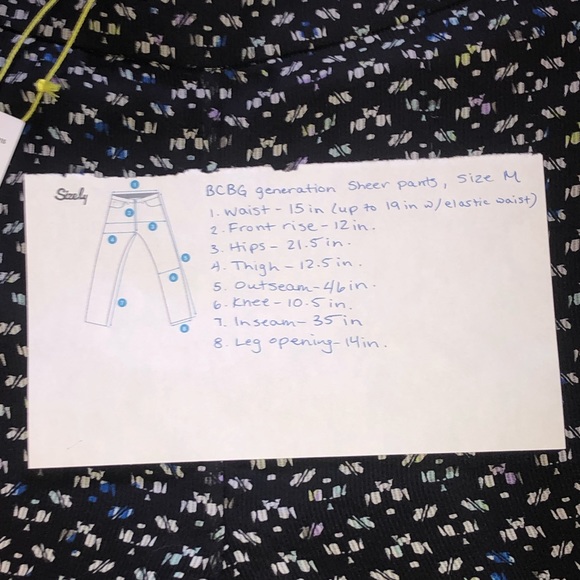 Sizely
BCBG generation Sheer pants, Size M
1. Waist - 15 in (up to 19 in w/elastic waist)
2. Front rise - 12 in.
3. Hips - 21.5 in.
4. Thigh - 12.5 in.
5. Outseam - 46 in.
6. Knee - 10.5 in.
7. Inseam - 35 in
8. Leg opening - 14 in.